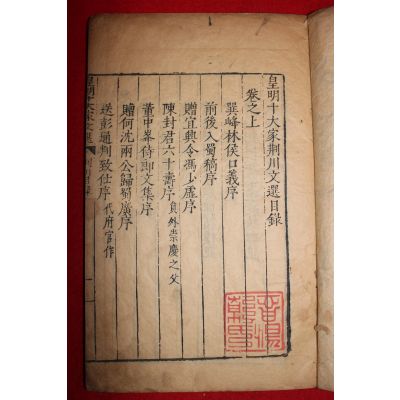 皇明十大家荆川文選目錄
卷之上
巽峰林侯口義序
前後入蜀稿序
贈宜興令馮少虛序
陳封君六十壽序 負外崇慶之父
董中峯侍郎文集序
贈何沈兩公歸蜀廣序
送彭通判致仕序 代府官作
皇明十大家文選